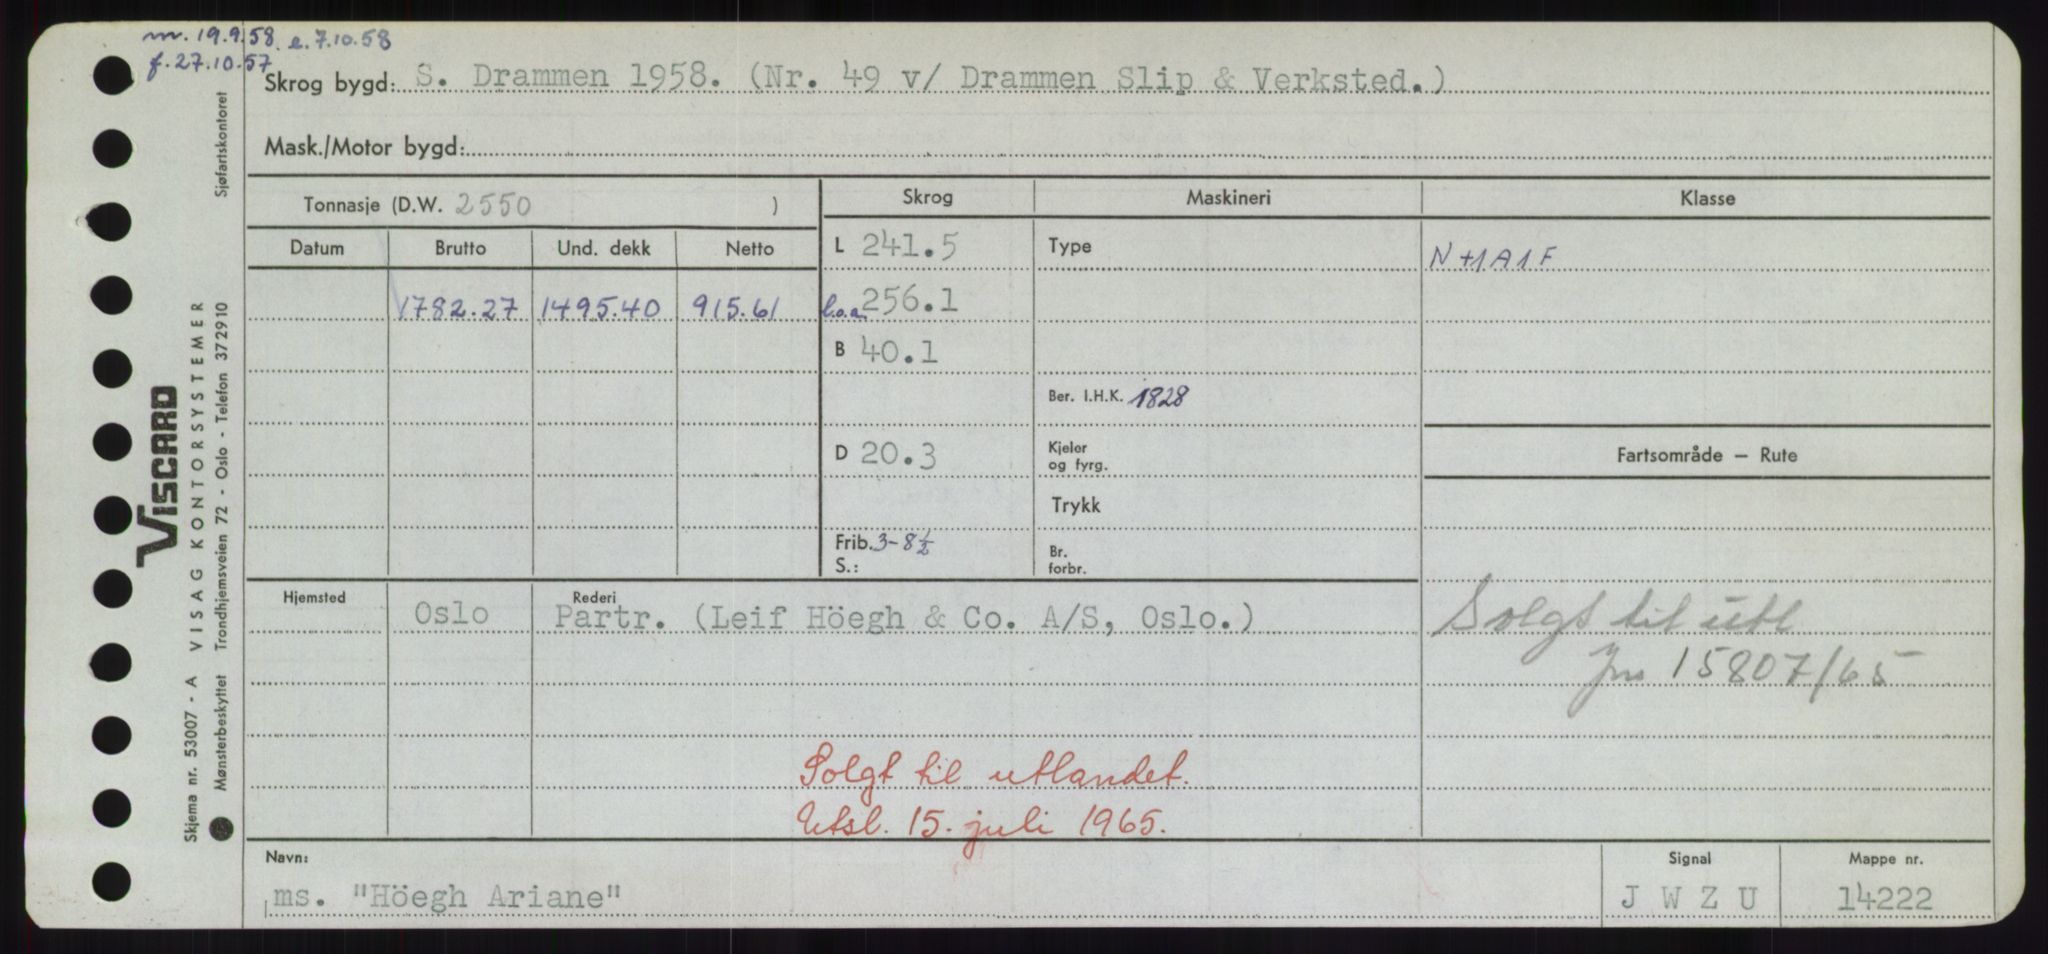 m. 19.9.58 e. 7.10.58
f. 27.10.57
Skrog bygd: S. Drammen 1958. (Nr. 49 v/ Drammen Slip & Verksted.)
Mask./Motor bygd:
Tonnasje (D.W. 2550 )
Skrog Maskineri Klasse
Datum Brutto Und. dekk Netto
L 241.5 Type N +1A1F
1782.27 1495.40 915.61 l.o.a. 256.1
B 40.1
Ber. I.H.K. 1828
D 20.3 Kjeler og fyrg.
Fartsområde — Rute
Trykk
Frib. 3-8½ Br. forbr.
S.:
Hjemsted Rederi
Oslo Partr. (Leif Höegh & Co. A/S, Oslo.)
Solgt til utl
Jnr 15807/65
Solgt til utlandet.
Utsl. 15. juli 1965.
Navn: Signal Mappe nr.
ms. "Höegh Ariane" J W Z U 14222
VISCARD
Skjema nr. 53007 - A VISAG KONTORSYSTEMER
Mønsterbeskyttet Trondhjemsveien 72 - Oslo - Telefon 372910 Sjøfartskontoret